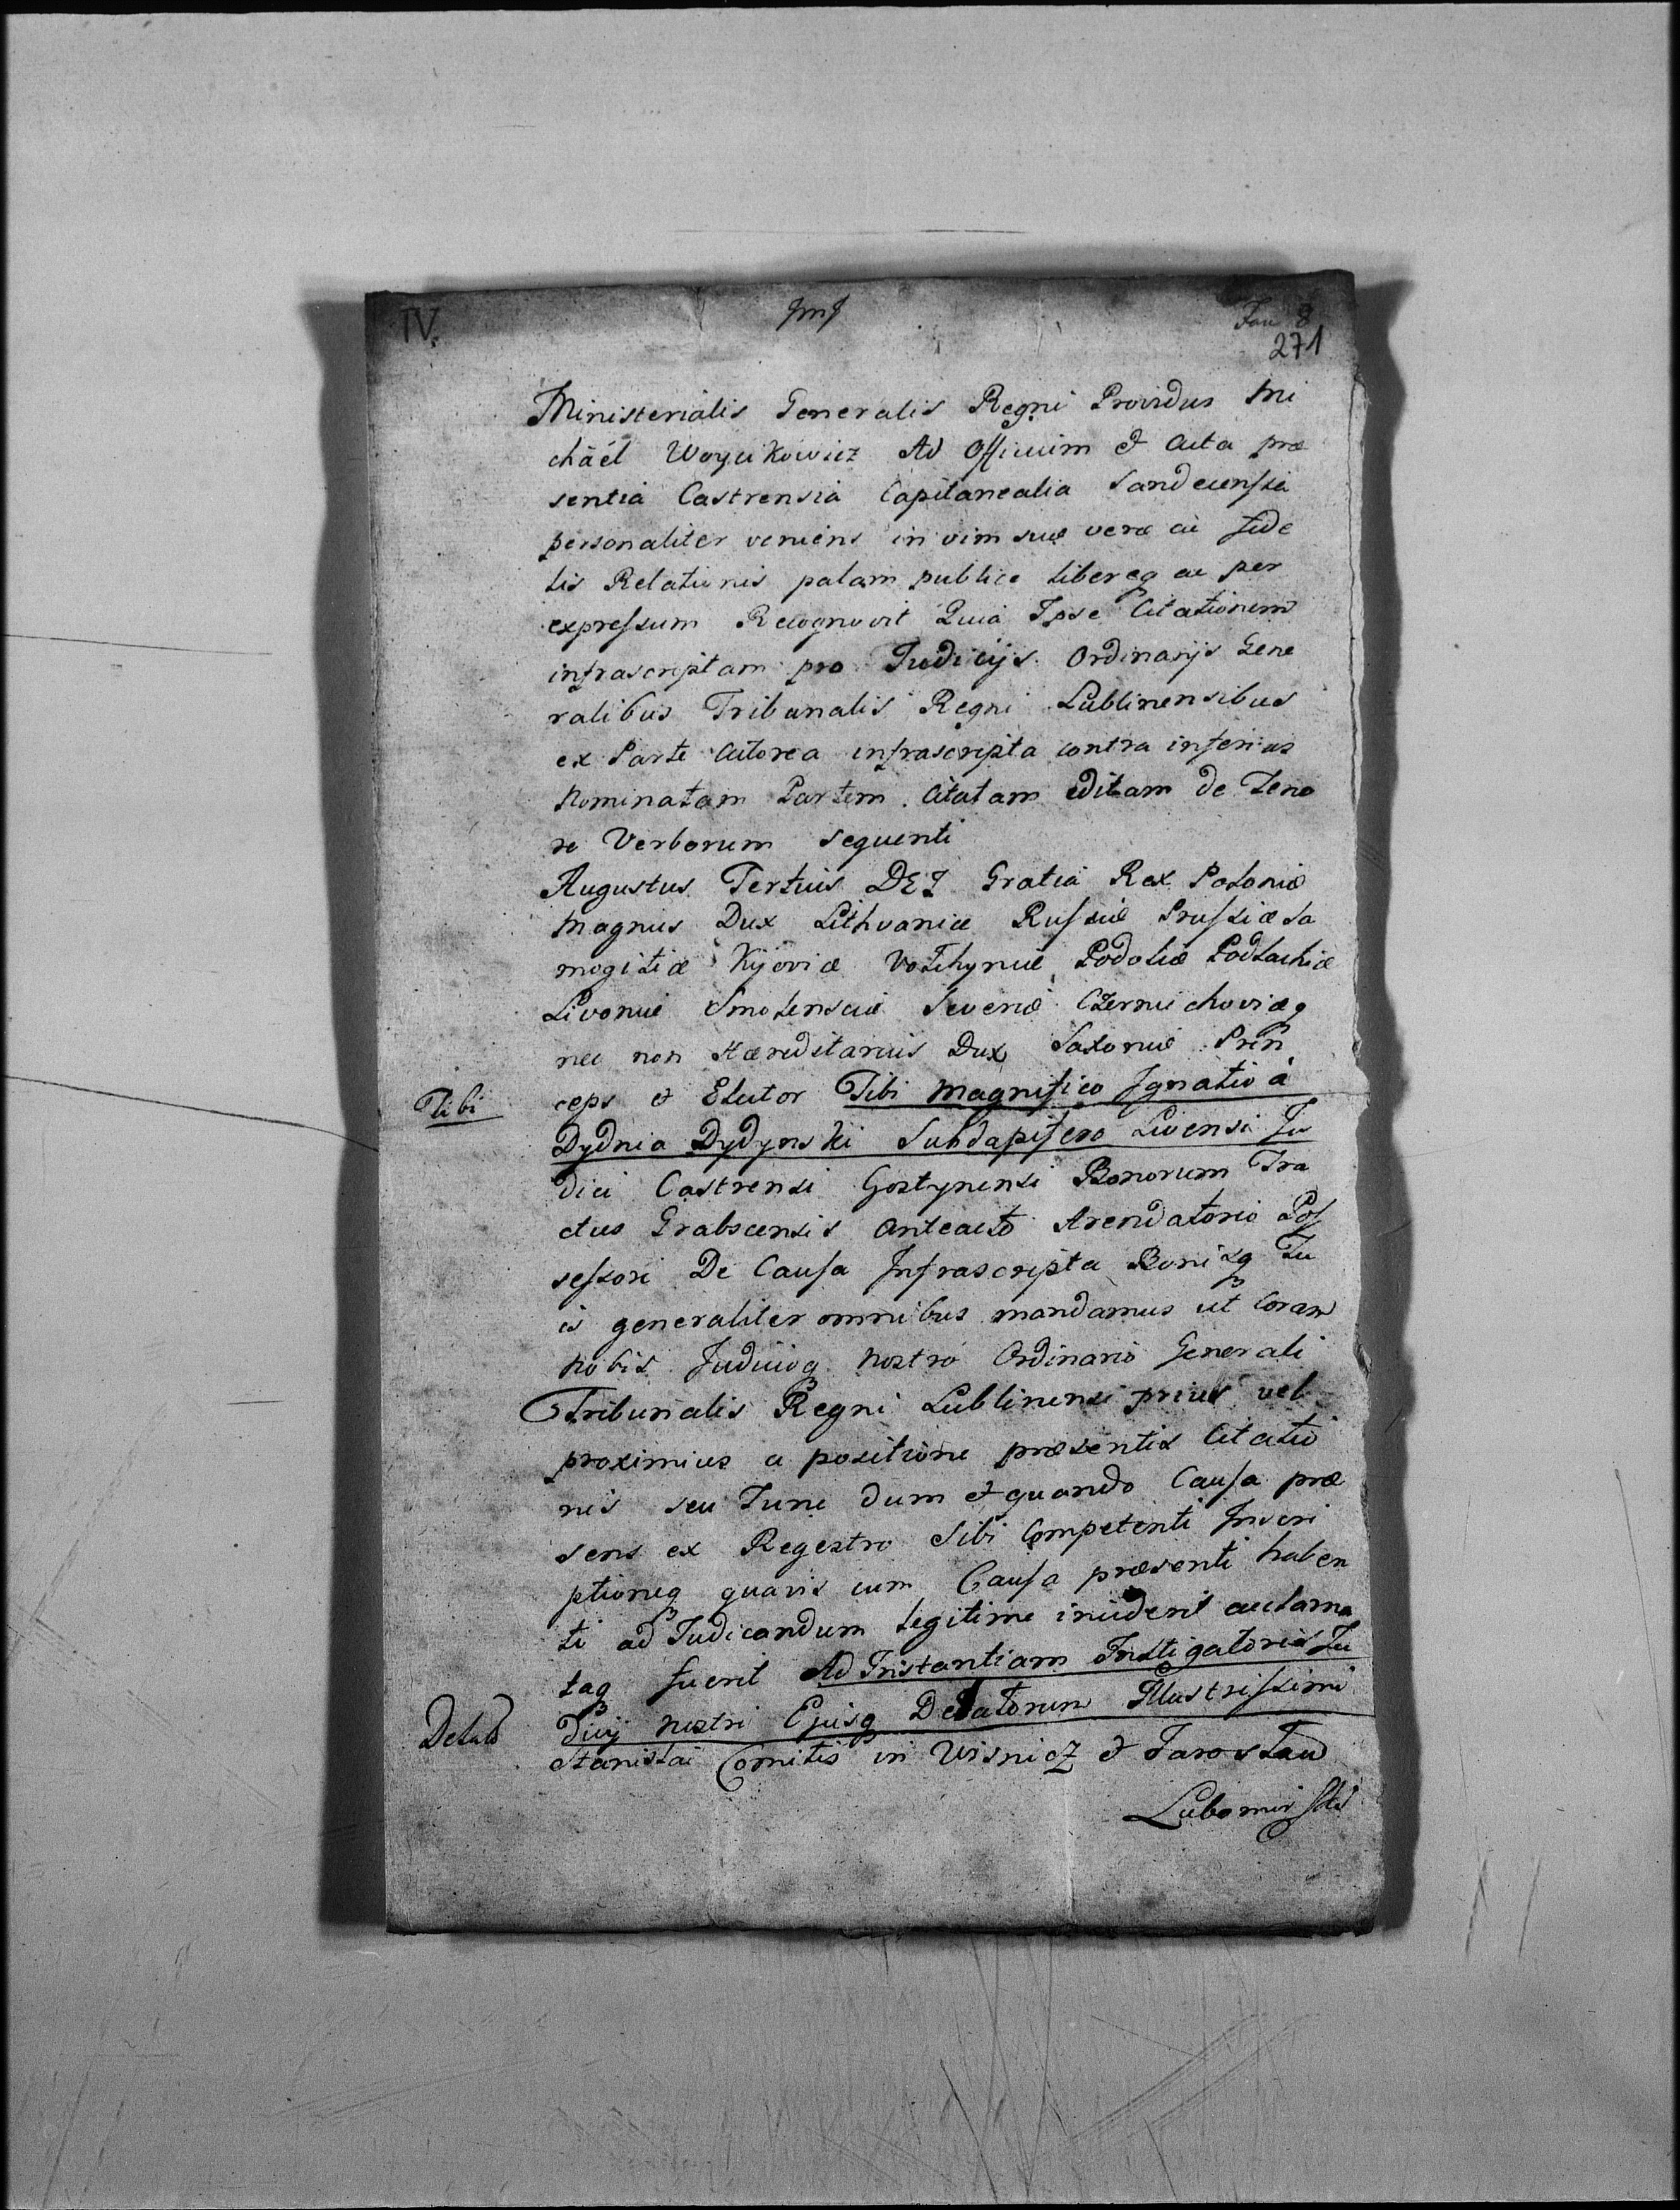 IV.
JmJ
Fau 8
271
Ministerialis Generalis Regni Providus Mi
chaël Woycikowicz Ad Officium & Acta præ
sentia Castrensia Capitanealia Sandecensia
personaliter veniens in vim suæ veræ ac fide
lis Relationis palam publice libereq ac per
expressum Recognovit Quia Ipse Citationem
infrascriptam pro Judicijs Ordinarijs Gene
ralibus Tribunalis Regni Lublinensibus
ex Parte Actorea infrascripta contra inferius
Nominatam Partem Citatam editam de Teno
re Verborum sequenti
Augustus Tertius DEI Gratia Rex Poloniæ
Magnus Dux Lithvaniæ Russiæ Prussiæ Sa
mogitiæ Kijoviæ Volhyniæ Podoliæ Podlachiæ
Livoniæ Smolensciæ Severiæ Czerniechoviæq
nec non Hæreditarius Dux Saxoniæ Prin
Tibi
ceps & Elector Tibi Magnifico Ignatio à
Dydnia Dydynski Subdapifero Livensi Ju
dici Castrensi Gostynensi Bonorum Tra
ctus Grabscensis Anteacto Arendatorio Pos
sessori De Causa Infrascripta Bonisq Tu
is generaliter omnibus mandamus ut Coram
Nobis Judicioq Nostro Ordinario Generali
Tribunalis Regni Lublinensi prius vel
proximius a positione præsentis Citatio
nis seu Tunc dum & quando Causa præ
sens ex Regestro Sibi Competenti Inscri
ptioneq quavis cum Causa præsenti haben
ti ad Judicandum legitime inciderit acclama
taq fuerit Ad Instantiam Instigatoris Ju
Delato
dicij Nostri Ejusq Delatorum Illustrissimi
Stanislai Comitis in Wisnicz & Jaroslaw
Lubomirski